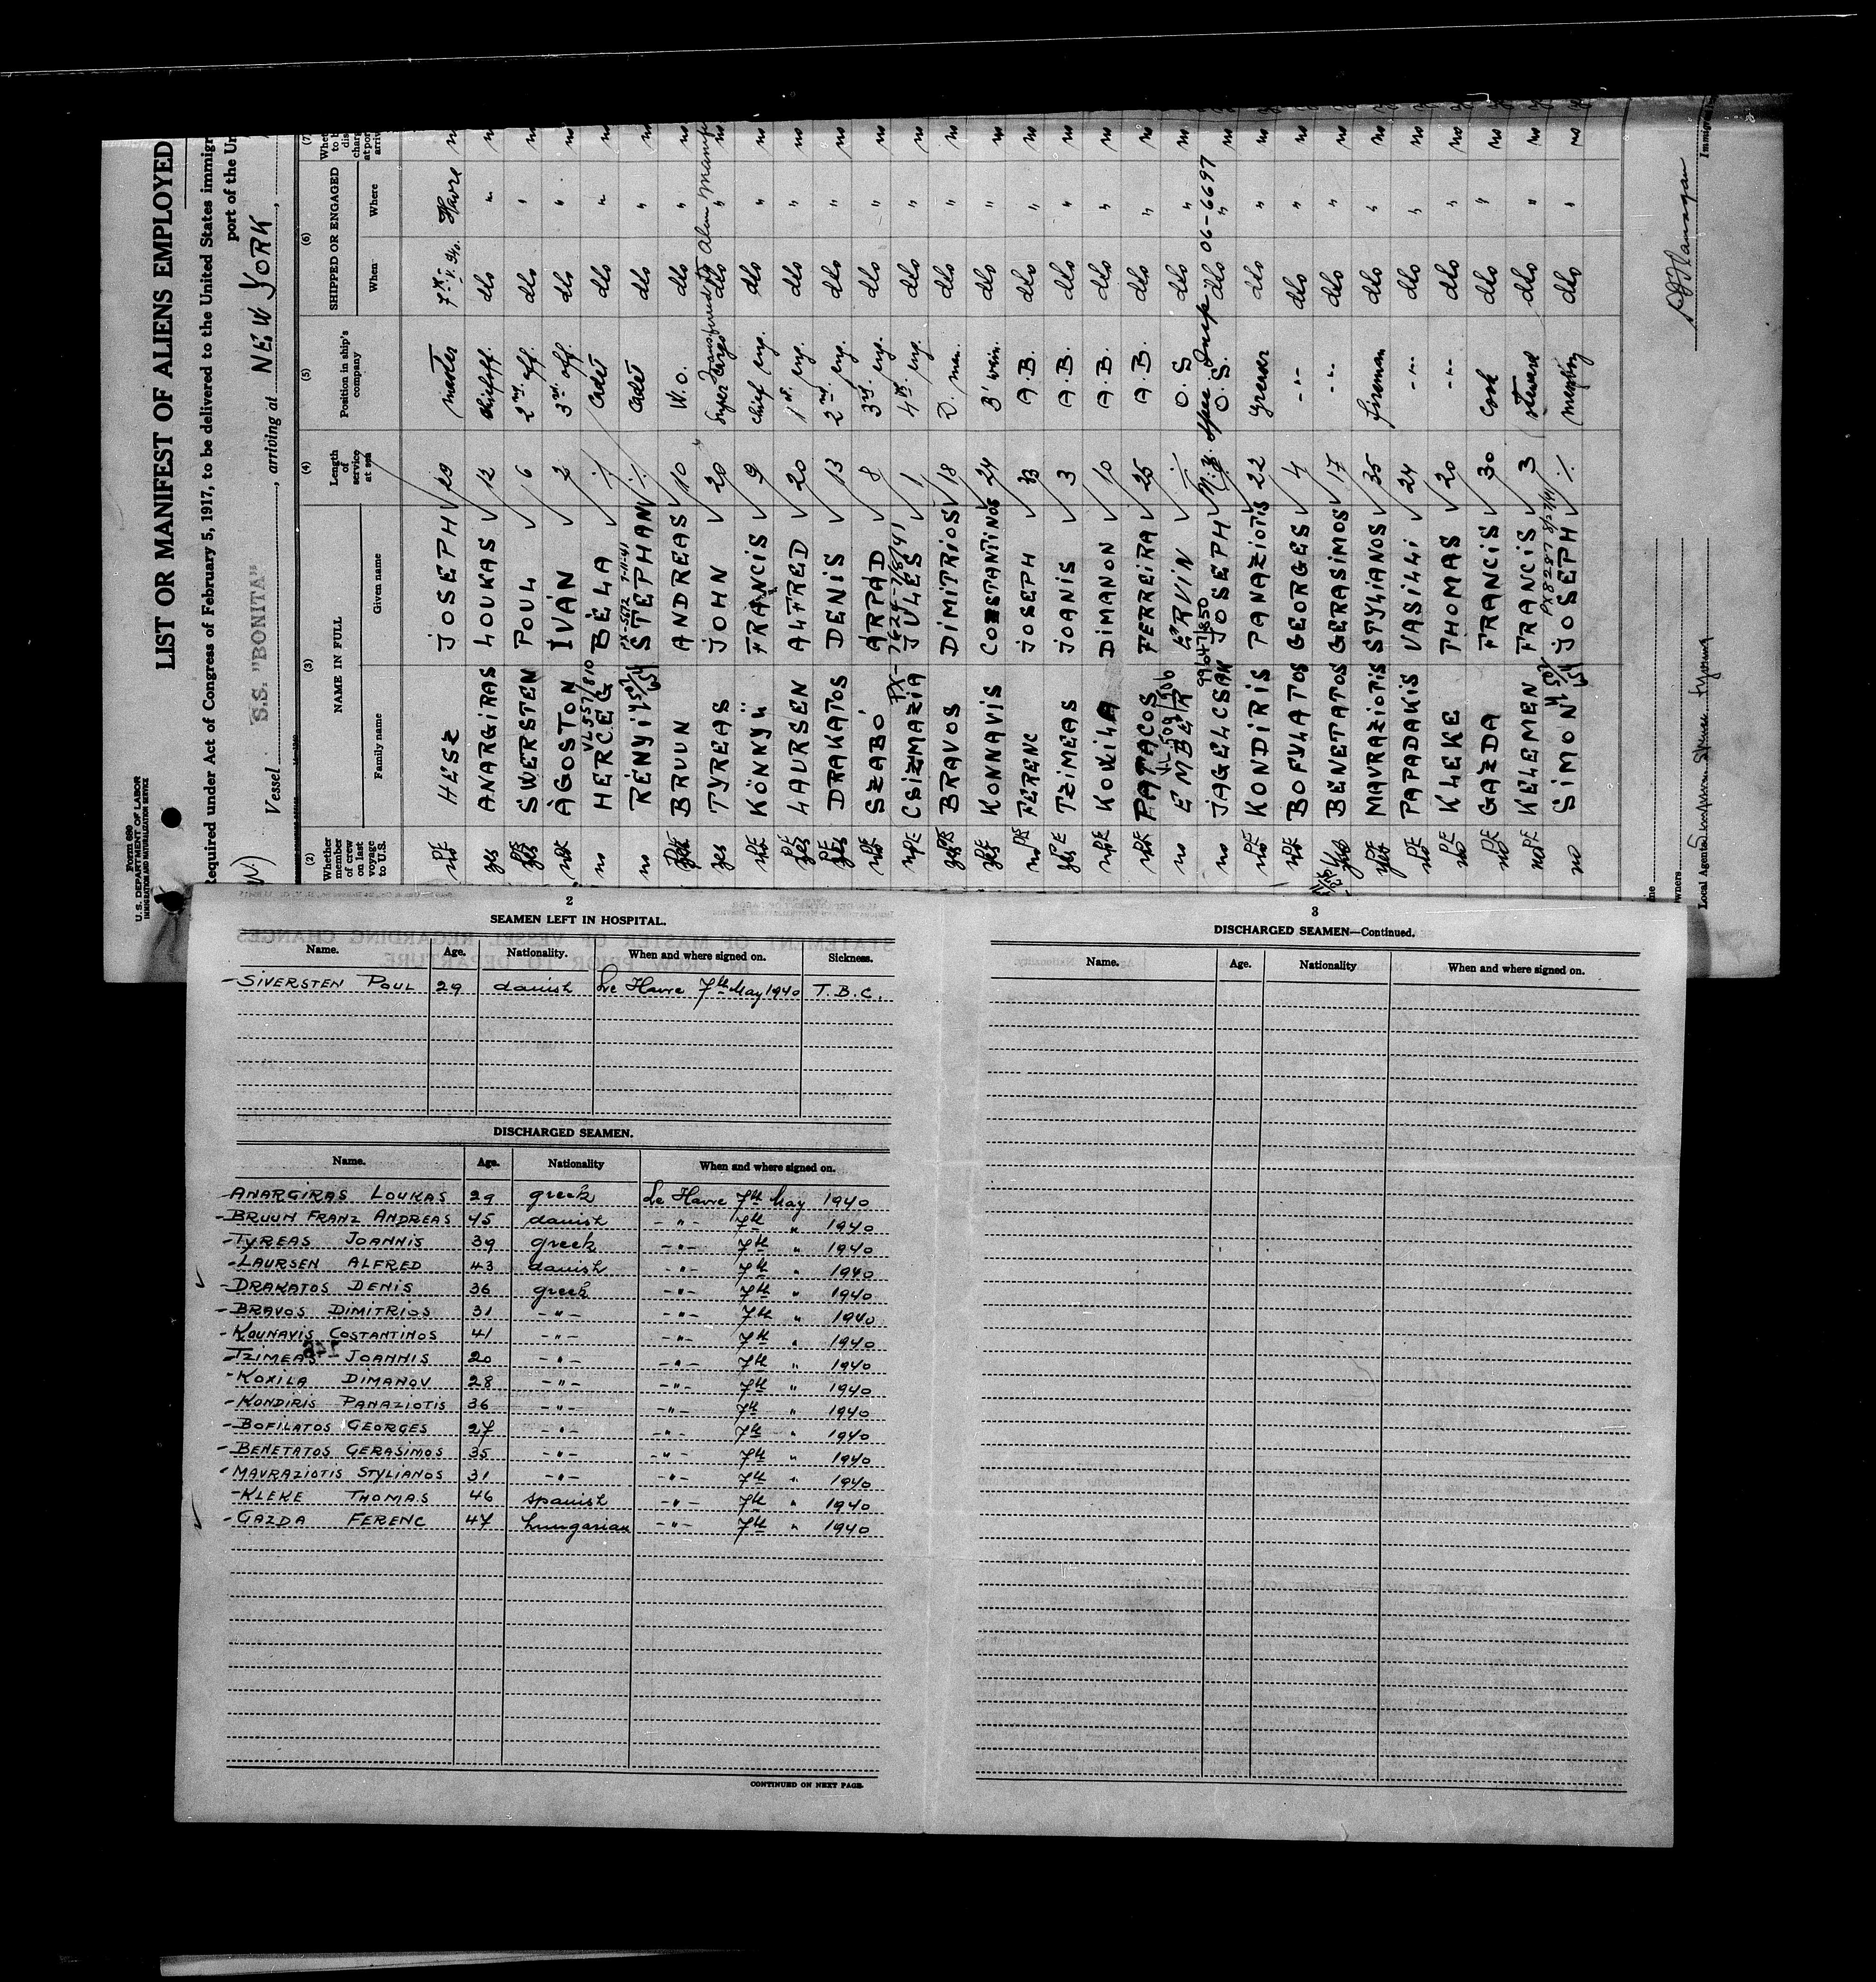 Form 680
U.S. DEPARTMENT OF LABOR
IMMIGRATION AND NATURALIZATION SERVICE
LIST OR MANIFEST OF ALIENS EMPLOYED
Required under Act of Congress of February 5, 1917, to be delivered to the United States immigr
port of the Un
Vessel S.S. "BONITA", arriving at NEW YORK,
(2) (3) (4) (5) (6) (7)
Whether member of crew on last voyage to U.S. NAME IN FULL Family name Given name Length of service at sea Position in ship's company SHIPPED OR ENGAGED When Where
no HÉSZ JOSEPH 29 master Havre no
yes ANARGIRAS LOUKAS 12 chief off. do " no
yes SWERSTEN POUL 6 2nd off. do " no
ÁGOSTON IVÁN 2 3rd off. do " no
VL 557/810
no HERCEG BÉLA ·/· cadet do " no
PX-5672 7-11-41
no RÉNYI STEPHAN ·/· cadet do " no
BRUUN ANDREAS 10 W.O. do " no
Transferred to Alien Manif
yes TYREAS JOHN 20 Super Cargo do " no
KÖNNYÜ FRANCIS 9 chief eng. do " no
yes LAURSEN ALFRED 20 1st eng. do " no
yes DRAKATOS DENIS 13 2nd eng. do " no
SZABÓ ÁRPÁD 8 3rd eng. do " no
PX-7624-7/8/41
CSIZMAZIA JULES 1 4th eng. do " no
yes BRAVOS DIMITRIOS 18 D. man. do " no
yes KONNAVIS COSTANTINOS 24 do " no
no FERENC JOSEPH 33 A.B. do " no
yes TZIMEAS JOANIS 3 A.B. do " no
KOXILA DIMANON 10 A.B. do " no
PATACOS FERREIRA 25 A.B. do " no
no EMBER ERVIN ·/· O.S do " no
99647/850 06-6697
no JAGELCSAK JOSEPH O.S. do " no
no KONDIRIS PANAZIOTIS 22 greaser do " no
BOFYLATOS GEORGES 4 -"- do " no
yes BENETATOS GERASIMOS 17 -"- do " no
yes MAVRAZIOTIS STYLIANOS 35 fireman do " no
no PAPADAKIS VASILLI 24 -"- do " no
no KLEKE THOMAS 20 -"- do " no
no GAZDA FRANCIS 30 cook do " no
KELEMEN FRANCIS 3 steward do " no
PX8287 8/27/41
no SIMON JOSEPH ·/· messboy do " no
Local Agents
Immigra
2
SEAMEN LEFT IN HOSPITAL.
Name. Age. Nationality. When and where signed on. Sickness.
- SIVERSTEN POUL 29 danish Le Havre 7th May 1940 T.B.C.
DISCHARGED SEAMEN.
Name. Age. Nationality When and where signed on.
- ANARGIRAS LOUKAS 29 greek Le Havre 7th May 1940
- BRUUN FRANZ ANDREAS 45 danish -"- 7th " 1940
- TYREAS JOANNIS 39 greek -"- 7th " 1940
- LAURSEN ALFRED 43 danish -"- 7th " 1940
- DRAKATOS DENIS 36 greek -"- 7th " 1940
- BRAVOS DIMITRIOS 31 -"- -"- 7th " 1940
- KOUNAVIS COSTANTINOS 41 -"- -"- 7th " 1940
- TZIMEAS JOANNIS 20 -"- -"- 7th " 1940
- KOXILA DIMANOV 28 -"- -"- 7th " 1940
- KONDIRIS PANAZIOTIS 36 -"- -"- 7th " 1940
- BOFILATOS GEORGES 27 -"- -"- 7th " 1940
- BENETATOS GERASIMOS 35 -"- -"- 7th " 1940
- MAVRAZIOTIS STYLIANOS 31 -"- -"- 7th " 1940
- KLEKE THOMAS 46 spanish -"- 7th " 1940
- GAZDA FERENC 47 hungarian -"- 7th " 1940
CONTINUED ON NEXT PAGE.
3
DISCHARGED SEAMEN—Continued.
Name. Age. Nationality When and where signed on.